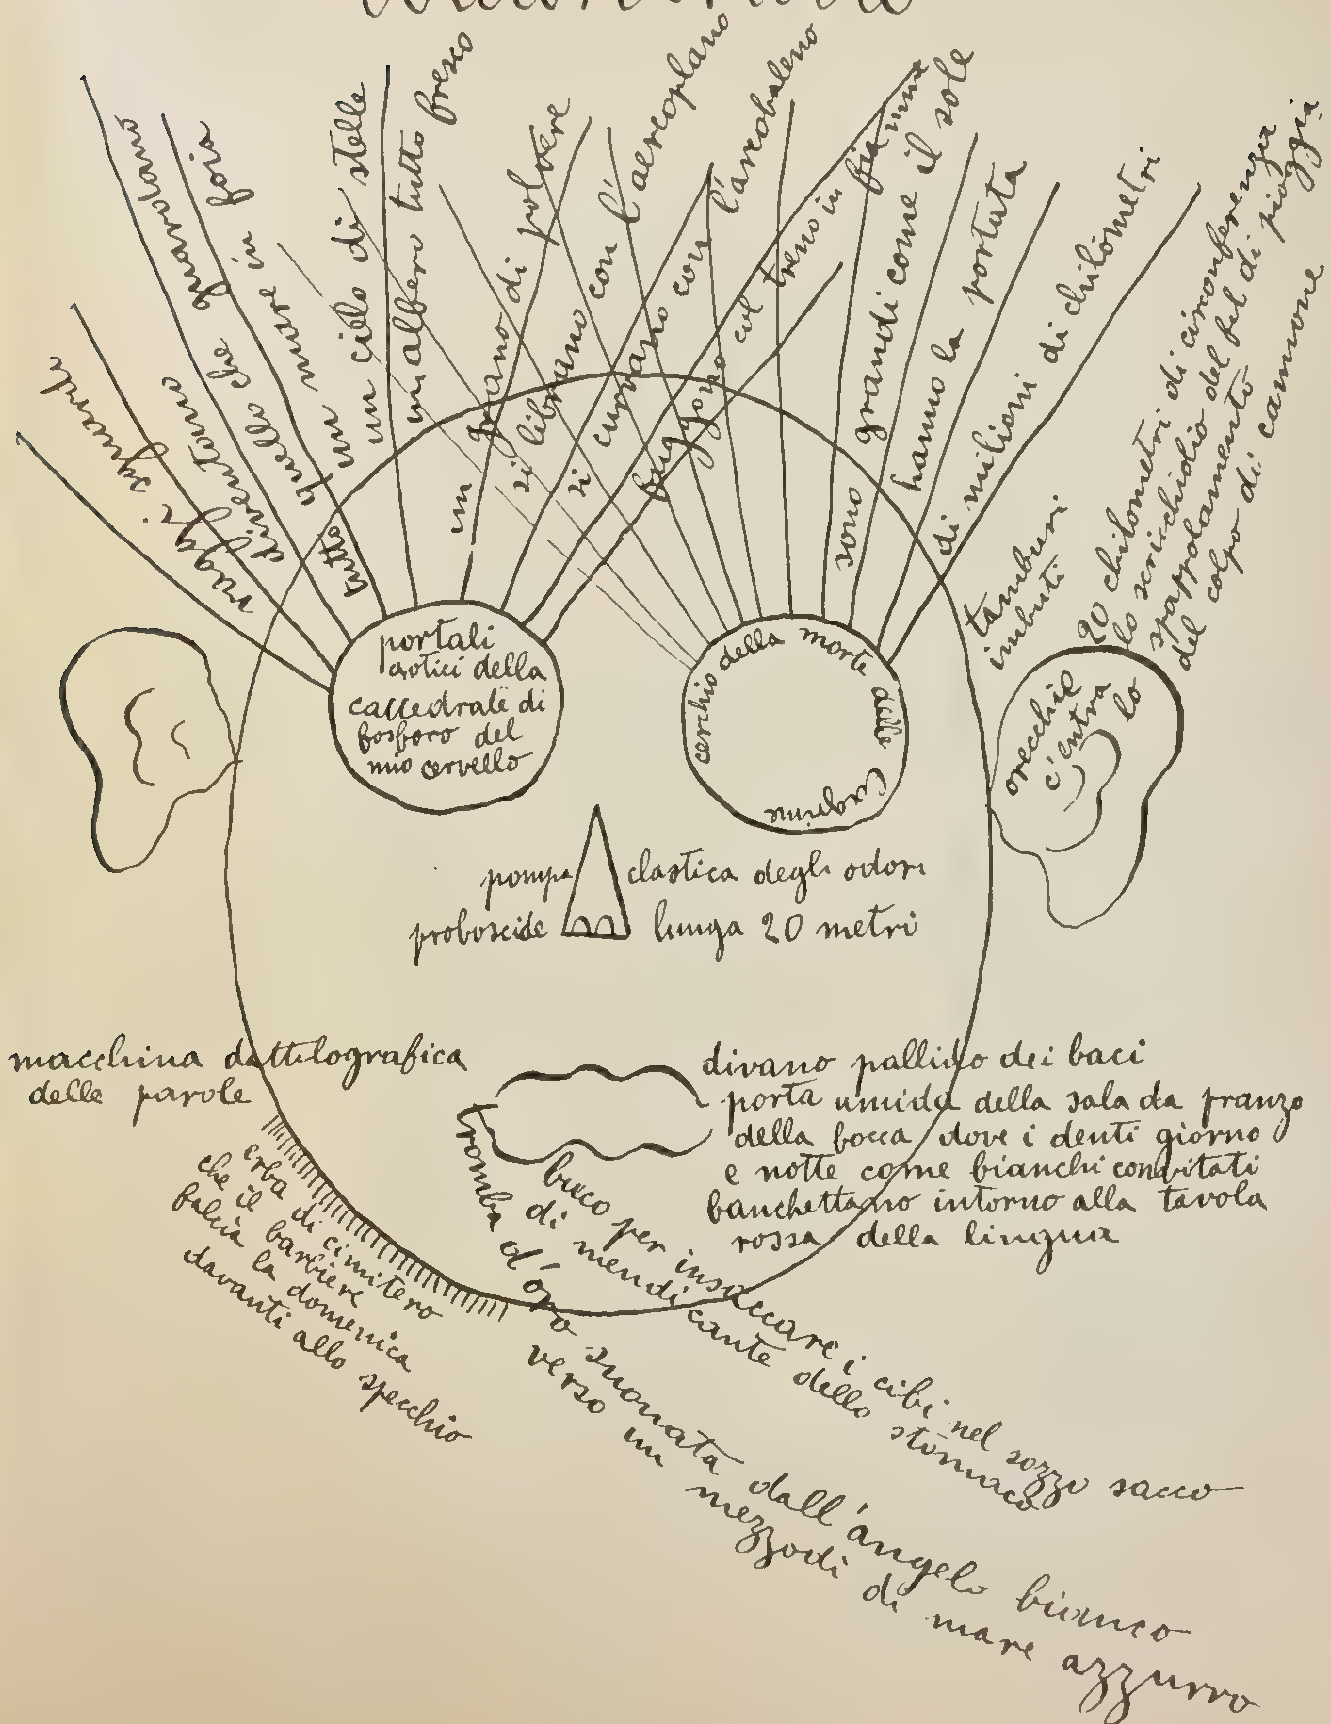 raggi sguardi
diventano
tutto quello che guardano
un mare in foia
un cielo di stelle
un albero tutto fresco
un grano di polvere
si librano con l'aereoplano
si curvano con l'arcobaleno
fuggono col treno in fiamme
sono grandi come il sole
hanno la portata
di milioni di chilometri
tamburi
imbuti
20 chilometri di circonferenza
lo scricchiolio del fil di pioggia
spappolamento
del colpo di cannone
orecchie
c'entra
lo
portali
erotici della
cattedrale di
fosforo del
mio cervello
cerchio della morte delle
pompa elastica degli odori
proboscide lunga 20 metri
macchina dattilografica
delle parole
divano pallido dei baci
porta umida della sala da pranzo
della bocca dove i denti giorno
e notte come bianchi convitati
banchettano intorno alla tavola
rossa della lingua
erba di cimitero
che il barbiere
falcia la domenica
davanti allo specchio
buco per insaccare i cibi nel sozzo sacco
di mendicante dello stomaco
tromba d'oro suonata dall'angelo bianco
verso un mezzodi di mare azzurro